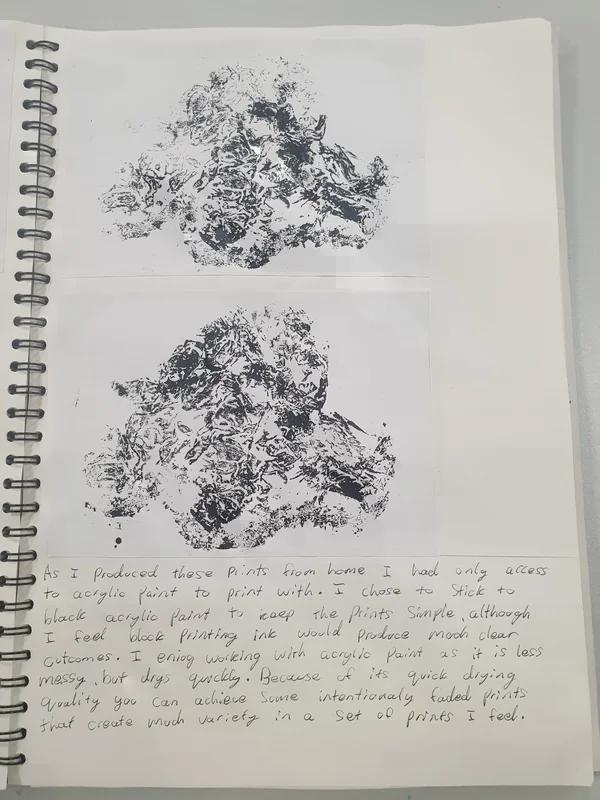 As I produced these prints from home I had only access
to acrylic paint to print with. I chose to stick to
black acrylic paint to keep the prints simple, although
I feel block printing ink would produce much clear
outcomes. I enjoy working with acrylic paint as it is less
messy, but drys quickly. Because of its quick drying
quality you can achieve some intentionaly faded prints
that create much variety in a set of prints I feel.